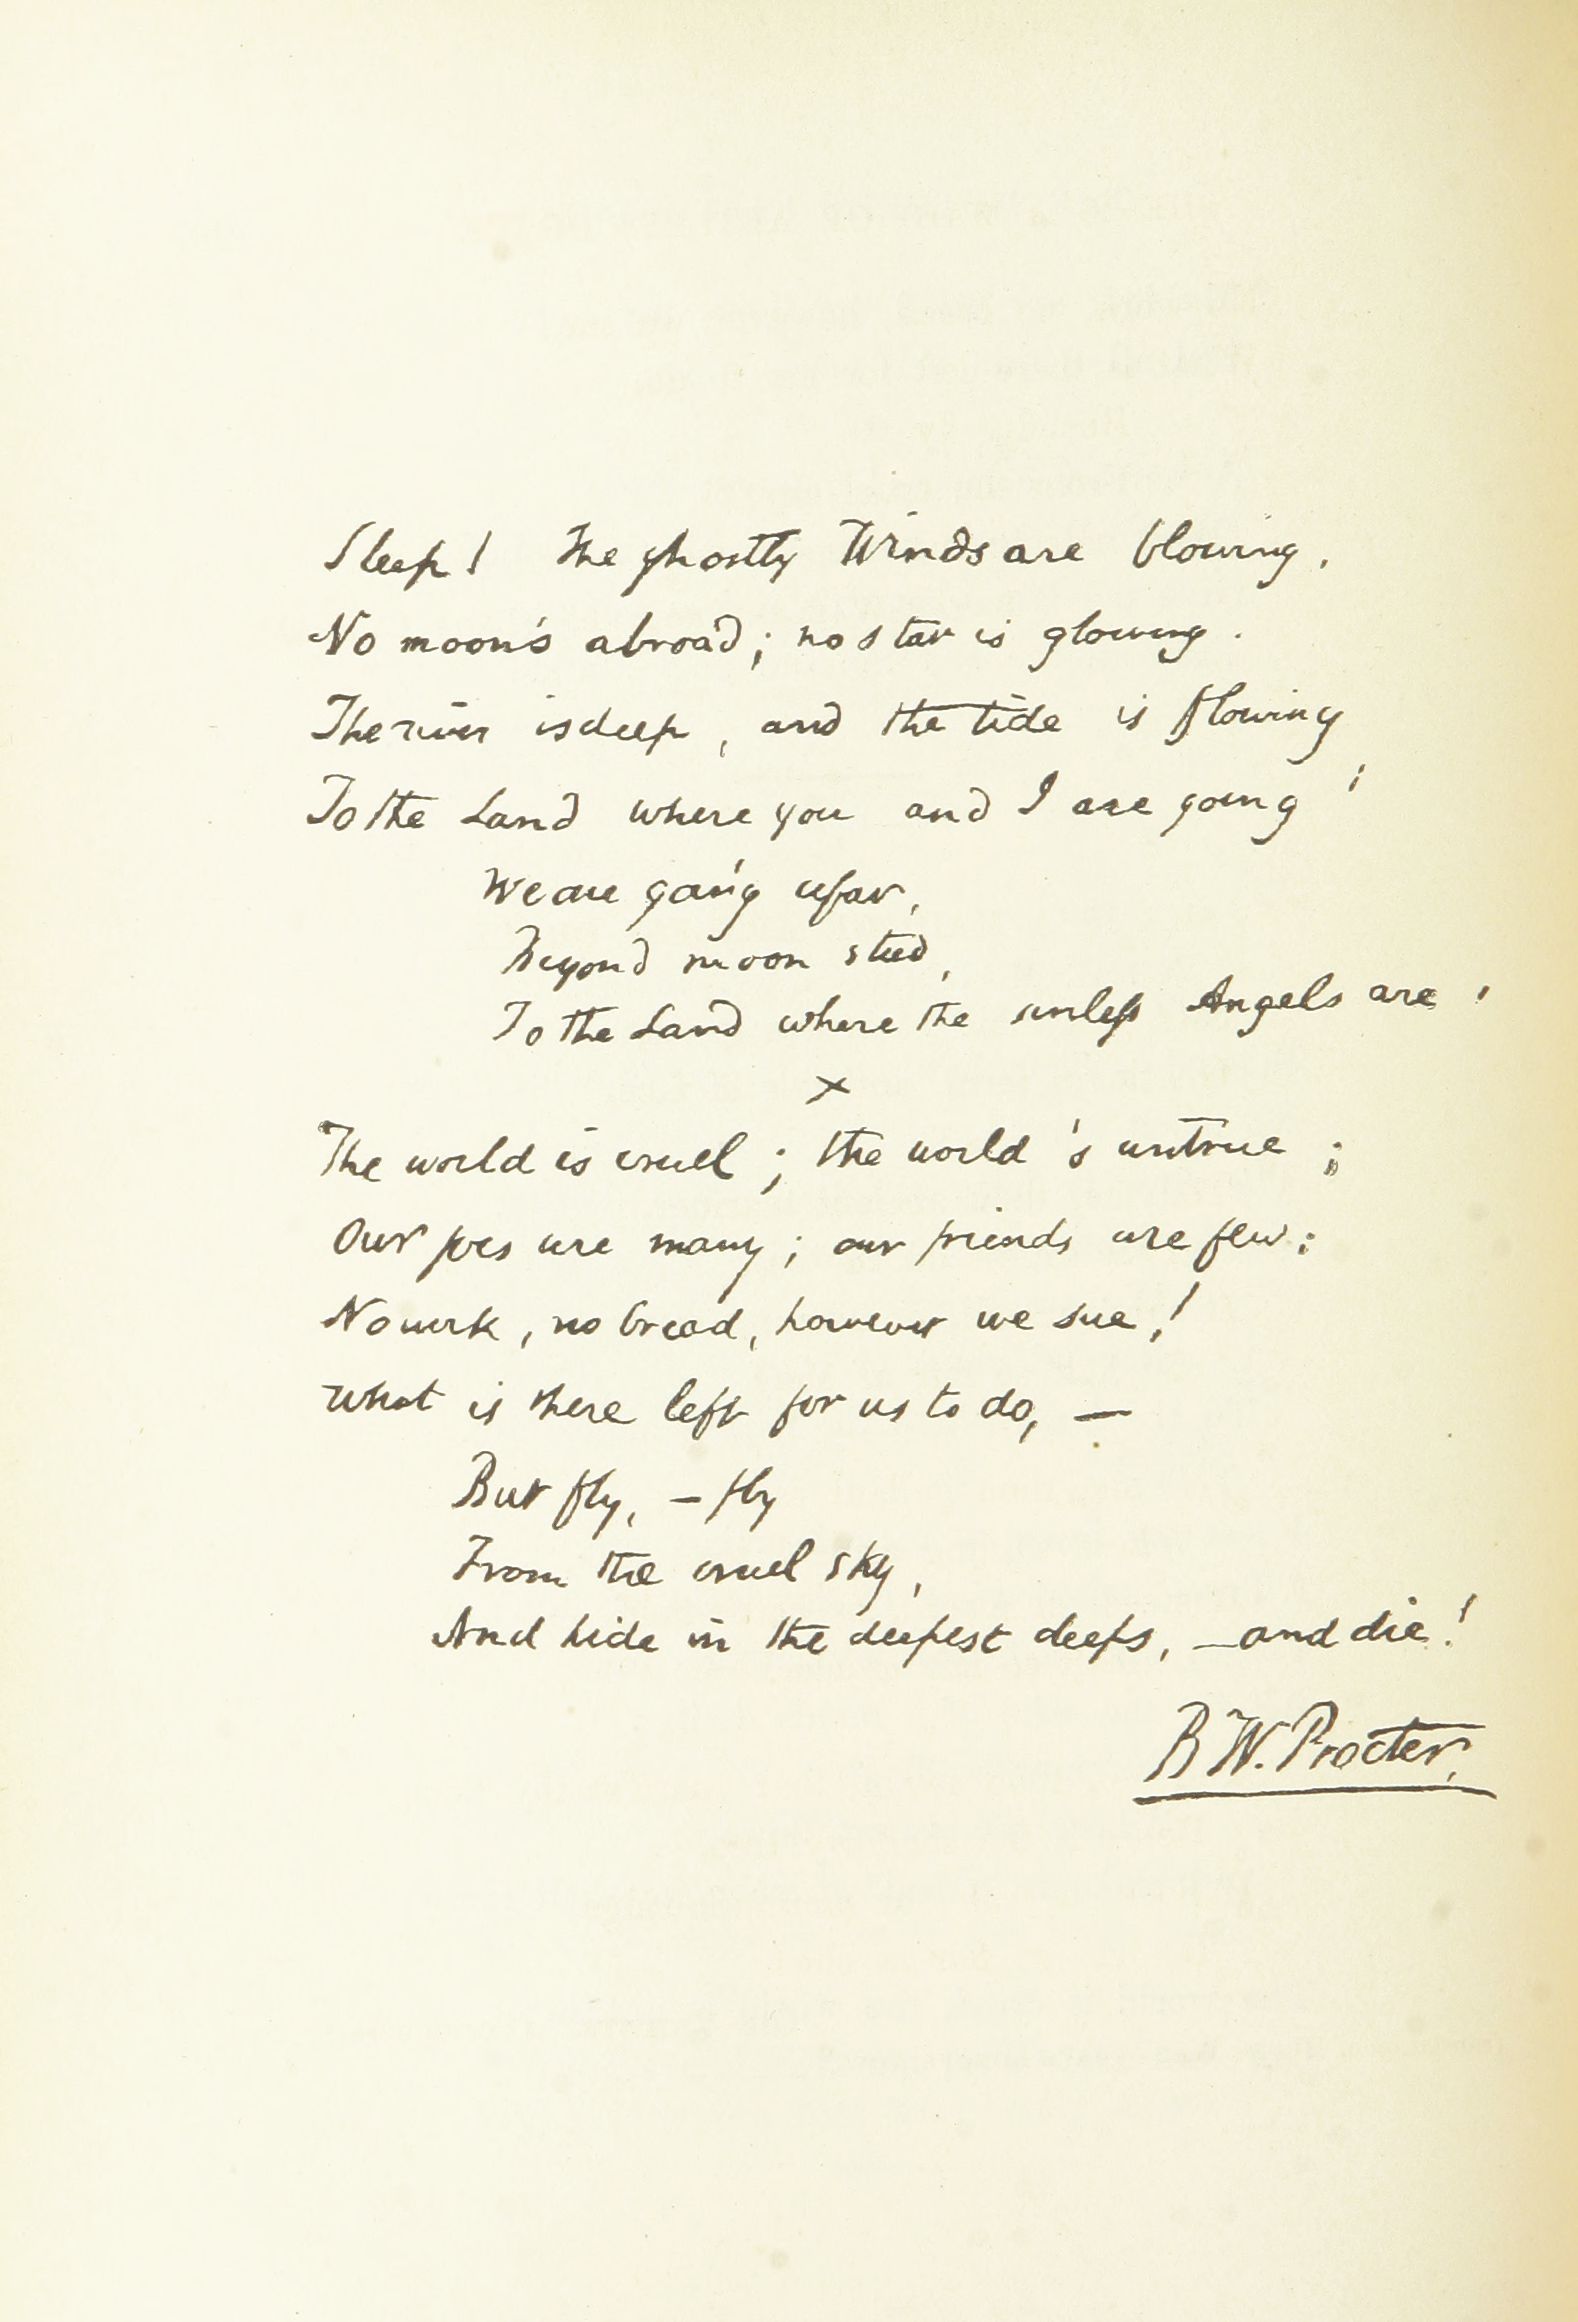 Sleep! The ghostly Winds are blowing,
No moon's abroad; no star is glowing.
The river is deep, and the tide is flowing
To the Land where you and I are going!
We are going afar,
Beyond moon
To the Land where the sinless Angels are!
×
The world is cruel; the world's untrue;
Our foes are many; our friends are few:
No work, no bread, however we sue!
What is there left for us to do, —
But fly, — fly
From the cruel sky,
And hide in the deepest deeps, — and die!
B W. Procter.